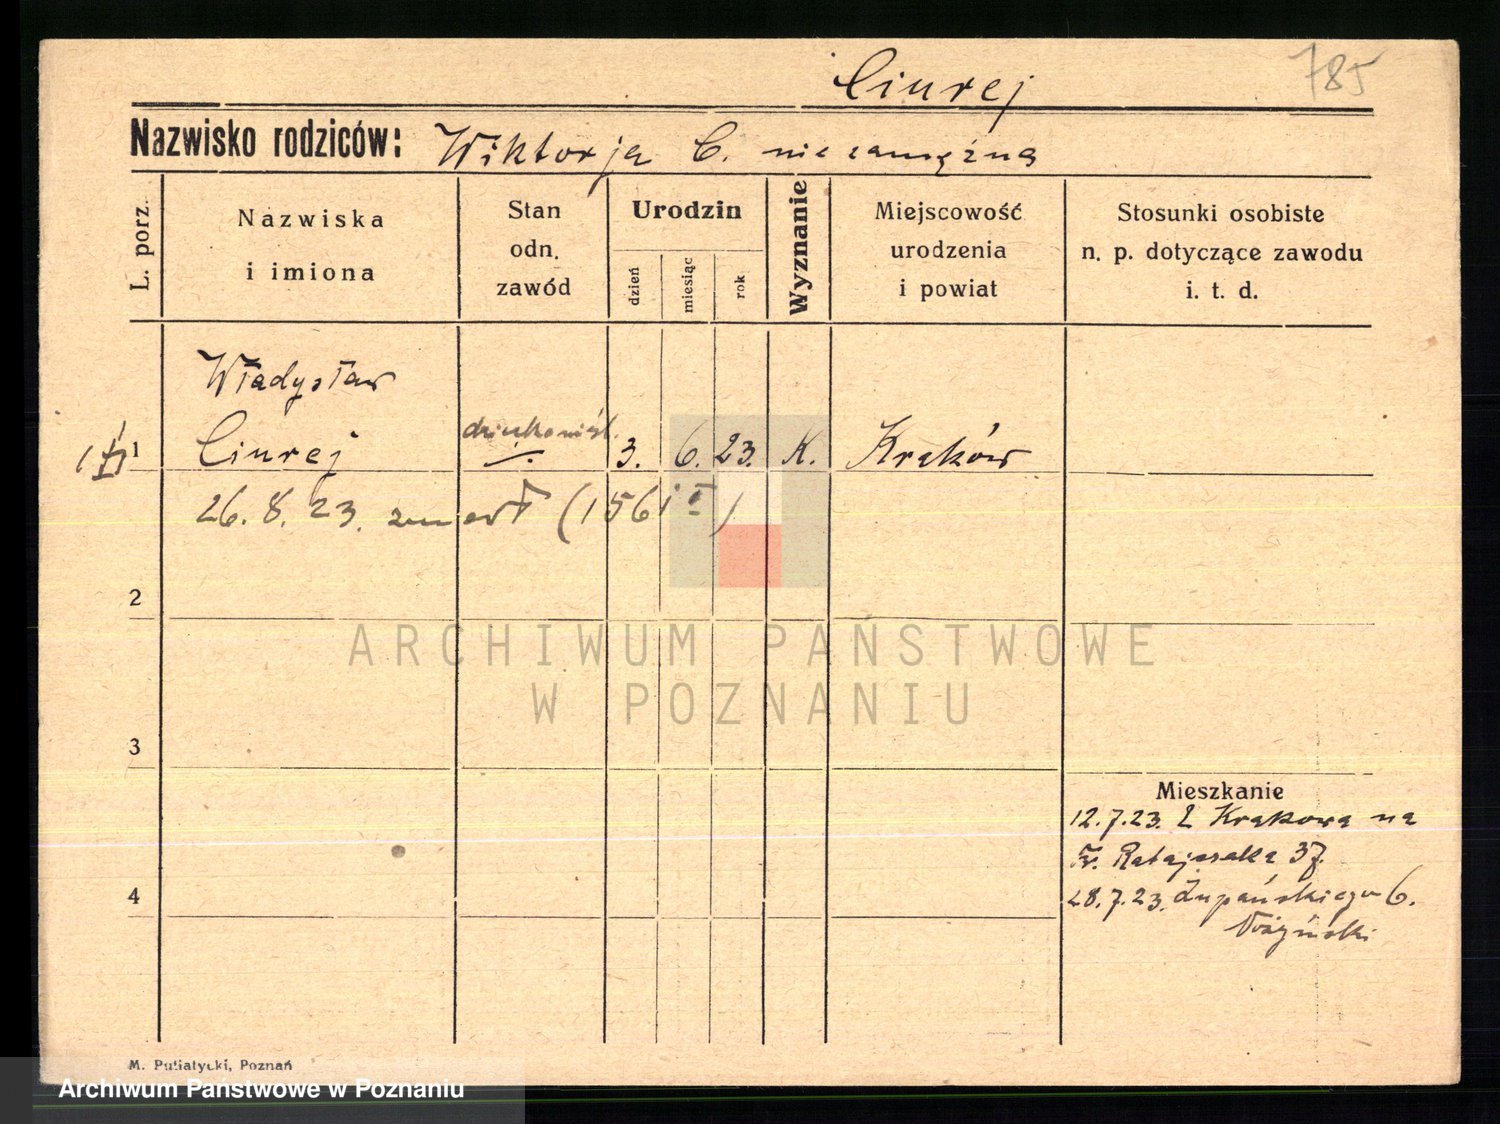 785
Ciurej
Nazwisko rodziców: Wiktorja C. niezamężna
L. porz.
Nazwiska
i imiona
Stan
odn.
zawód
Urodzin
dzień
miesiąc
rok
Wyznanie
Miejscowość
urodzenia
i powiat
Stosunki osobiste
n. p. dotyczące zawodu
i. t. d.
Władysław
1 Ciurej 3. 6. 23. K. Kraków
26. 8. 23. zmarł (1561
2
3
4
Mieszkanie
12.7.23. z Krakowa na
Fr. Ratajczaka 37.
28.7.23. Żupańskiego 6.
M. Putiatycki, Poznań
ARCHIWUM PAŃSTWOWE
W POZNANIU
Archiwum Państwowe w Poznaniu